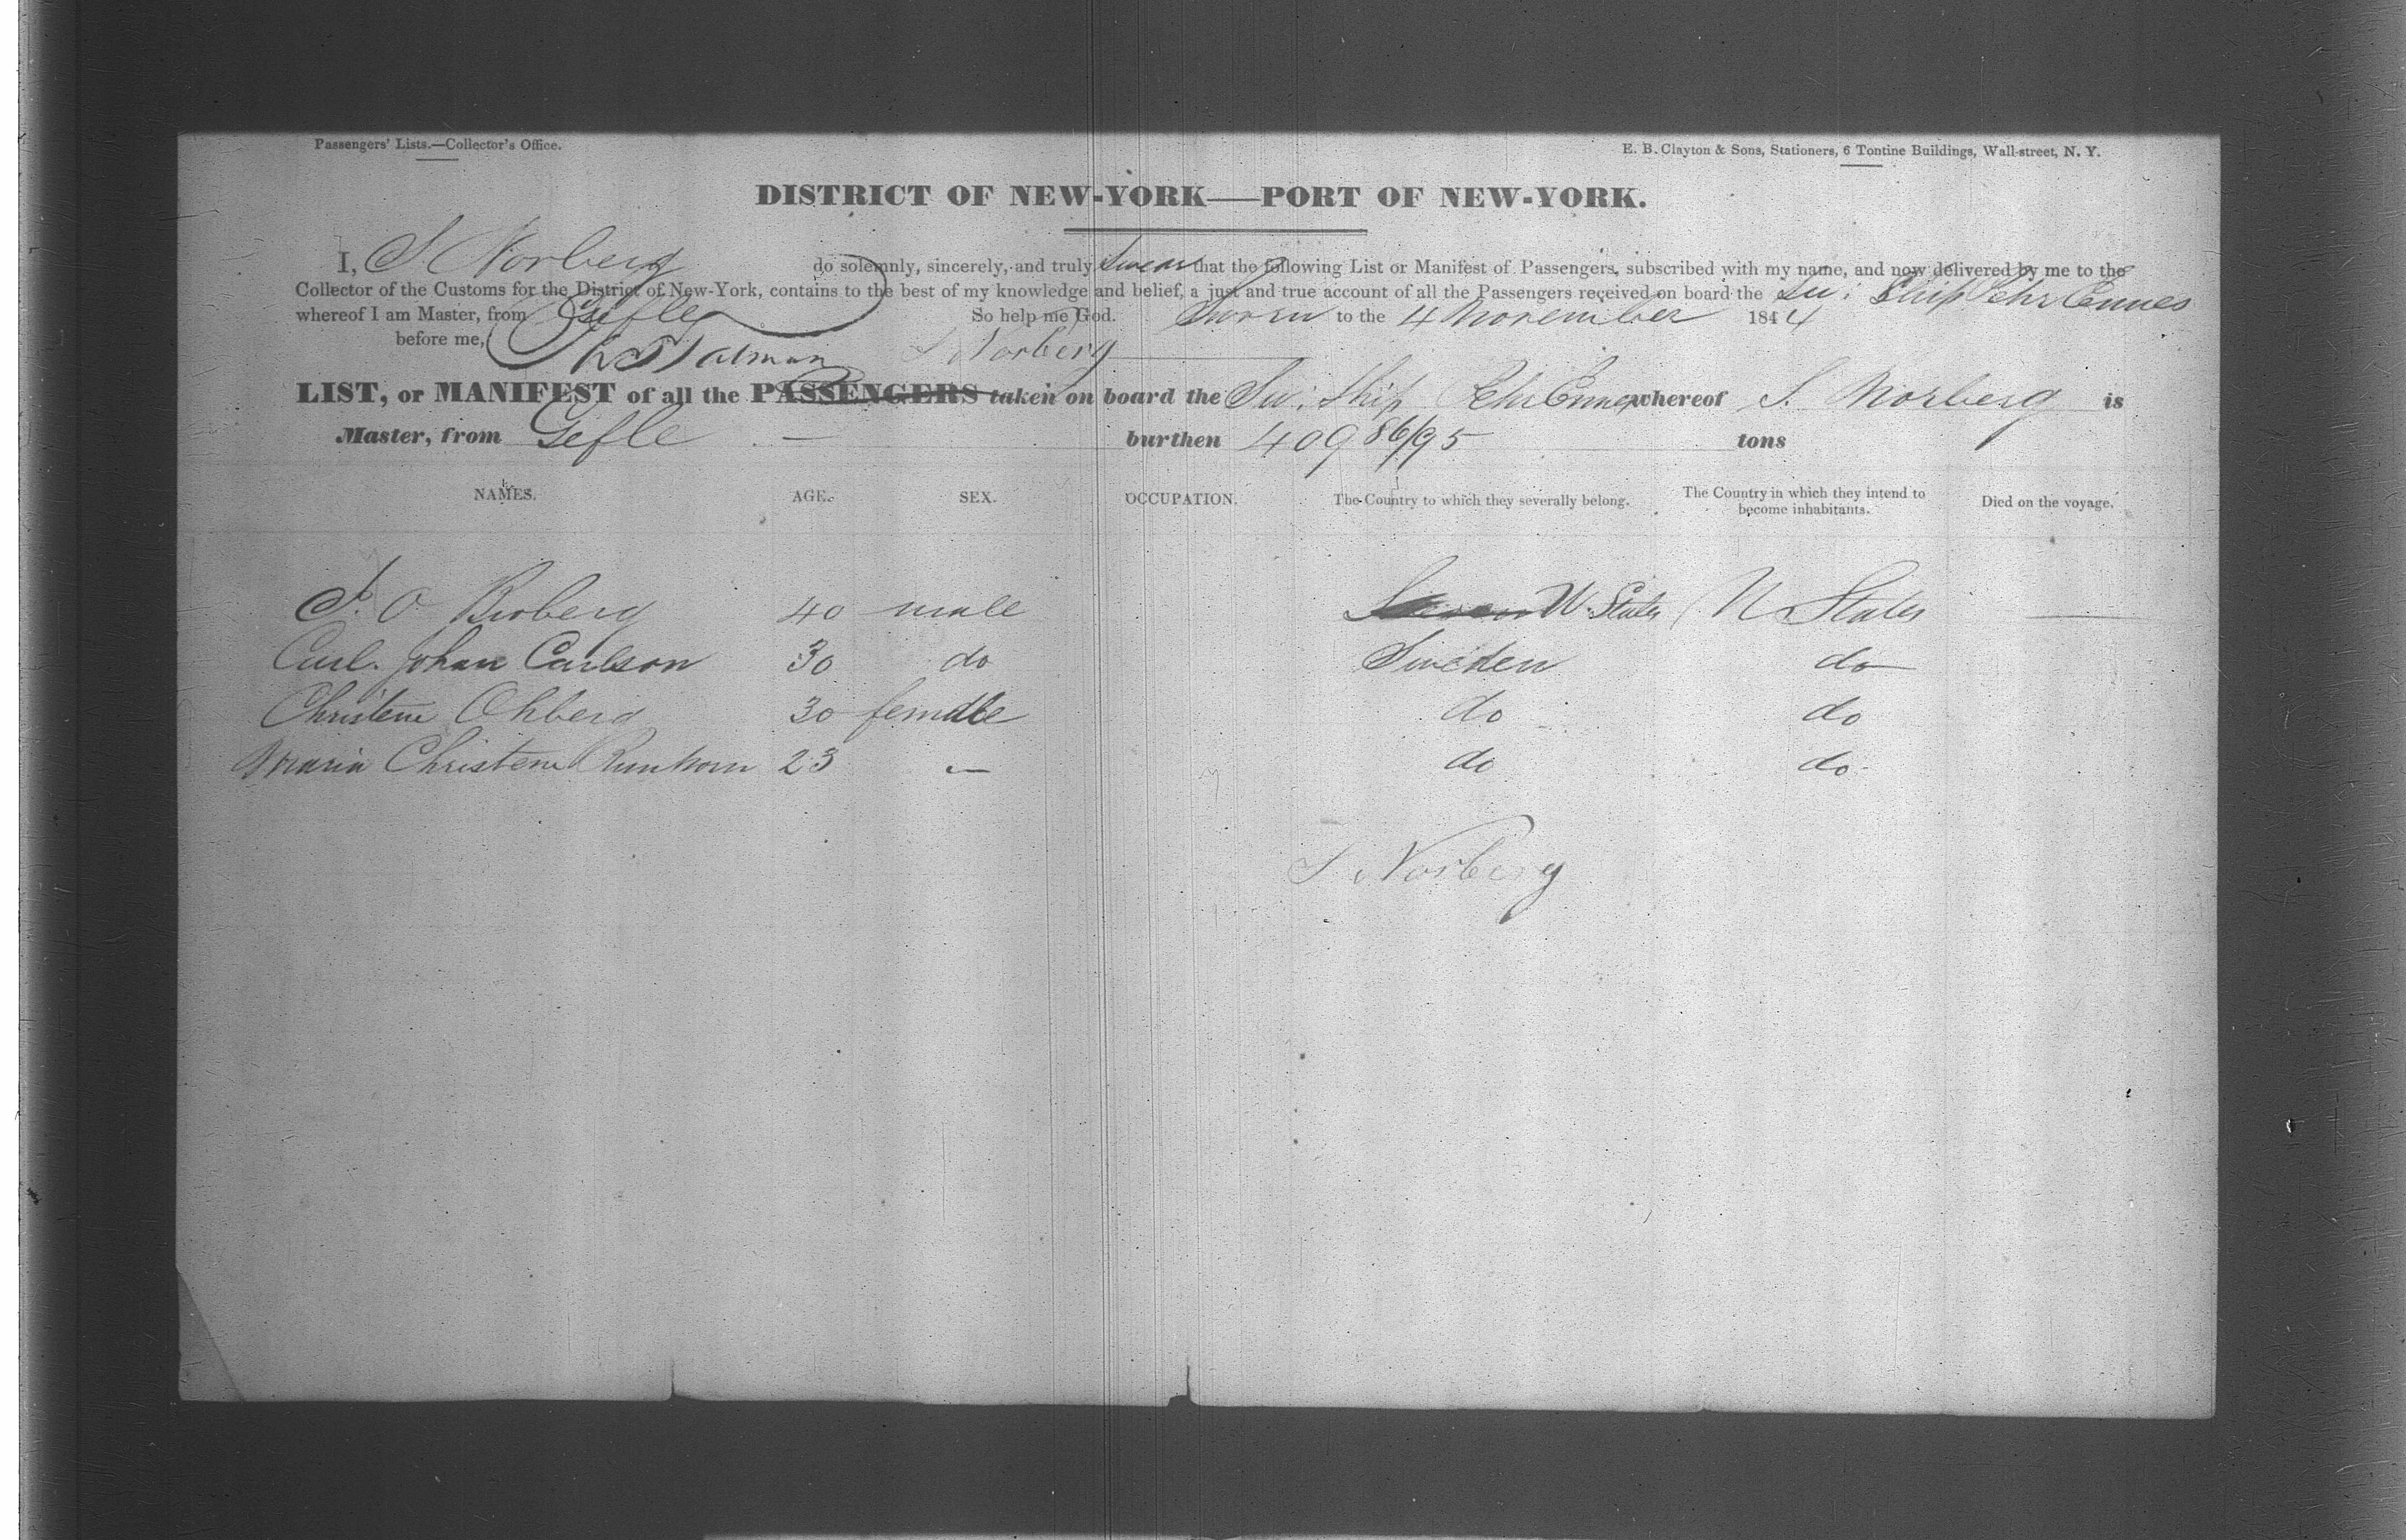 Passengers' Lists.—Collector's Office.
E. B. Clayton & Sons, Stationers, 6 Tontine Buildings, Wall-street, N. Y.
DISTRICT OF NEW-YORK——PORT OF NEW-YORK.
I, S Norberg do solemnly, sincerely, and truly Swear that the following List or Manifest of Passengers, subscribed with my name, and now delivered by me to the
Collector of the Customs for the District of New-York, contains to the best of my knowledge and belief, a just and true account of all the Passengers received on board the Sw: Ship Pehr Ennes
whereof I am Master, from Gefle So help me God. Sworn to the 4 November 1844
before me, Talman S Norberg
LIST, or MANIFEST of all the PASSENGERS taken on board the Sw: Ship Pehr Ennes whereof S. Norberg is
Master, from Gefle — burthen 409 86/95 tons
NAMES. AGE. SEX. OCCUPATION. The Country to which they severally belong. The Country in which they intend to become inhabitants. Died on the voyage.
O Broberg 40 male U. States U States —
Carl. Johan Carlson 30 do Sweden do
Christene Ohberg 30 female do do
Maria Christene 23 — do do
S Norberg